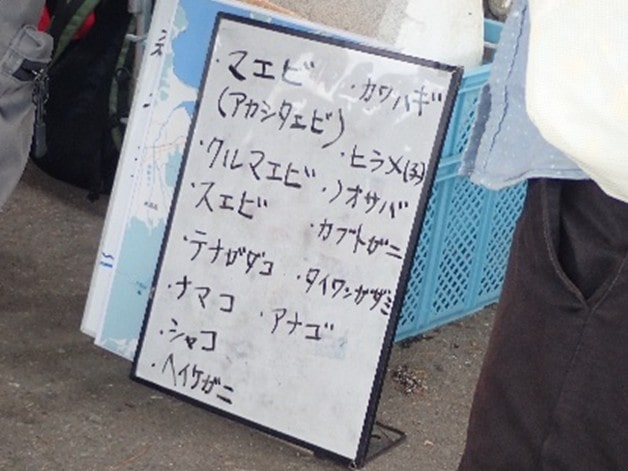 ・マエビ
(アカシタエビ)
・クルマエビ
・スエビ
・テナガダコ
・ナマコ
・シャコ
・ヘイケガニ
・カワハギ
・ヒラメ(子)
・ノオサバ
・カブトガニ
・タイワンガザミ
・アナゴ